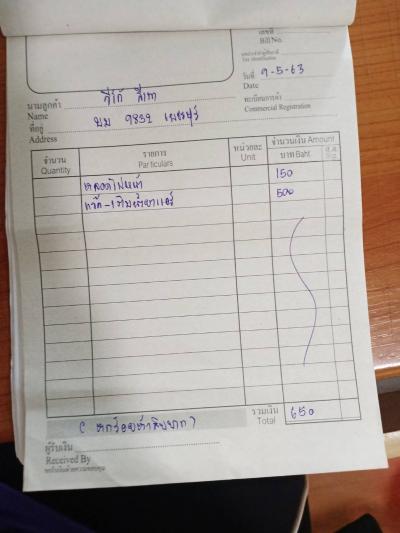 เลขที่
Bill No.
เลขประจำตัวผู้เสียภาษี
Tax Identification
วันที่ 9-5-63
Date
นามลูกค้า วีโก้ สีเทา
Name
ทะเบียนการค้า
Commercial Registration
ที่อยู่ บม 9832 เพชรบุรี
Address
จำนวน
Quantity
รายการ
Particulars
หน่วยละ
Unit
จำนวนเงิน Amount
บาท Baht
ส.ต.
Stg.
หลอดไฟหน้า 150
500
(หกร้อยห้าสิบบาท)
รวมเงิน
Total 650
ผู้รับเงิน
Received By